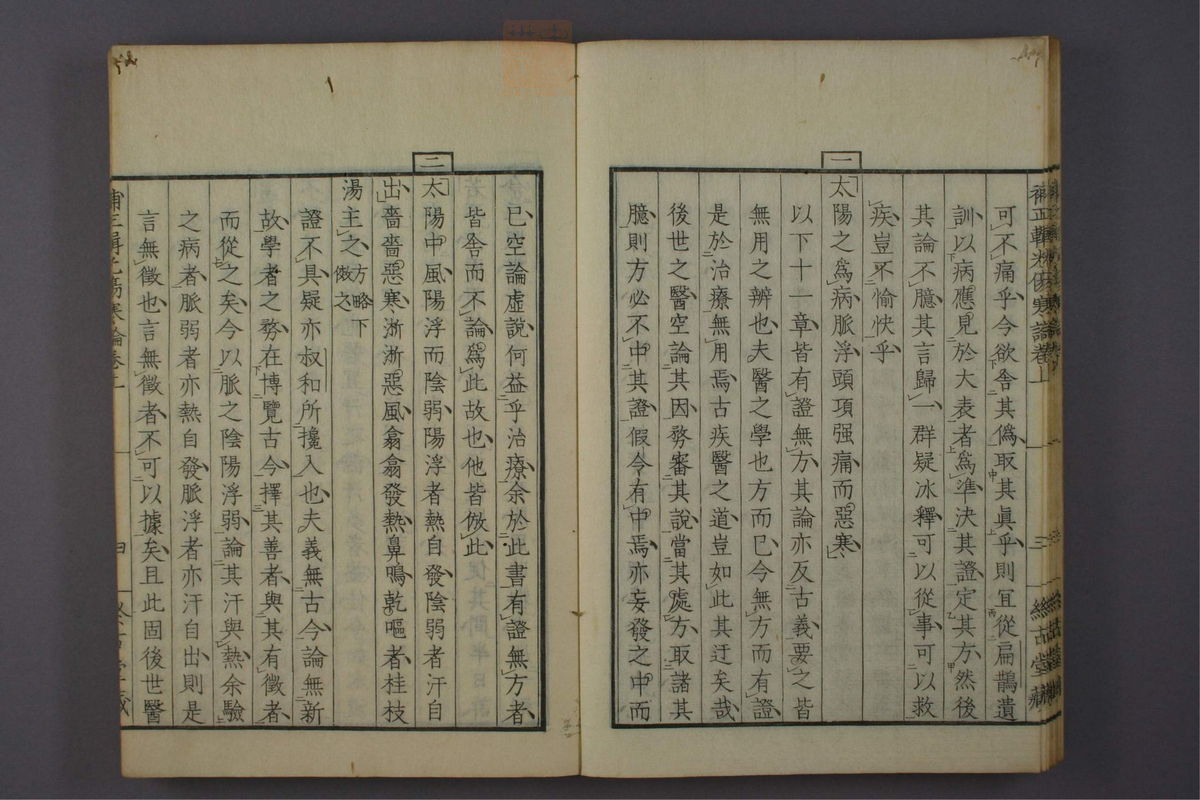 補正輯光傷寒論卷上 三 絲古堂藏
可不痛乎今欲舍其僞取其眞乎則宜從扁鵲遺
訓以病應見於大表者爲準決其證定其方然後
其論不臆其言歸一群疑冰釋可以從事可以救
疾豈不愉快乎
一
太陽之爲病脈浮頭項强痛而惡寒
以下十一章皆有證無方其論亦反古義要之皆
無用之辨也夫醫之學也方而已今無方而有證
是於治療無用焉古疾醫之道豈如此其迂矣哉
後世之醫空論其因務審其說當其處方取諸其
臆則方必不中其證假令有中焉亦妄發之中而
已空論虛說何益乎治療余於此書有證無方者
皆舍而不論爲此故也他皆倣此
二
太陽中風陽浮而陰弱陽浮者熱自發陰弱者汗自
出嗇嗇惡寒淅淅惡風翕翕發熱鼻鳴乾嘔者桂枝
湯主之方略下倣之
證不具疑亦叔和所攙入也夫義無古今論無新
故學者之務在博覽古今擇其善者與其有徵者
而從之矣今以脈之陰陽浮弱論其汗與熱余驗
之病者脈弱者亦熱自發脈浮者亦汗自出則是
言無徵也言無徵者不可以據矣且此固後世醫
傷寒論卷上 四